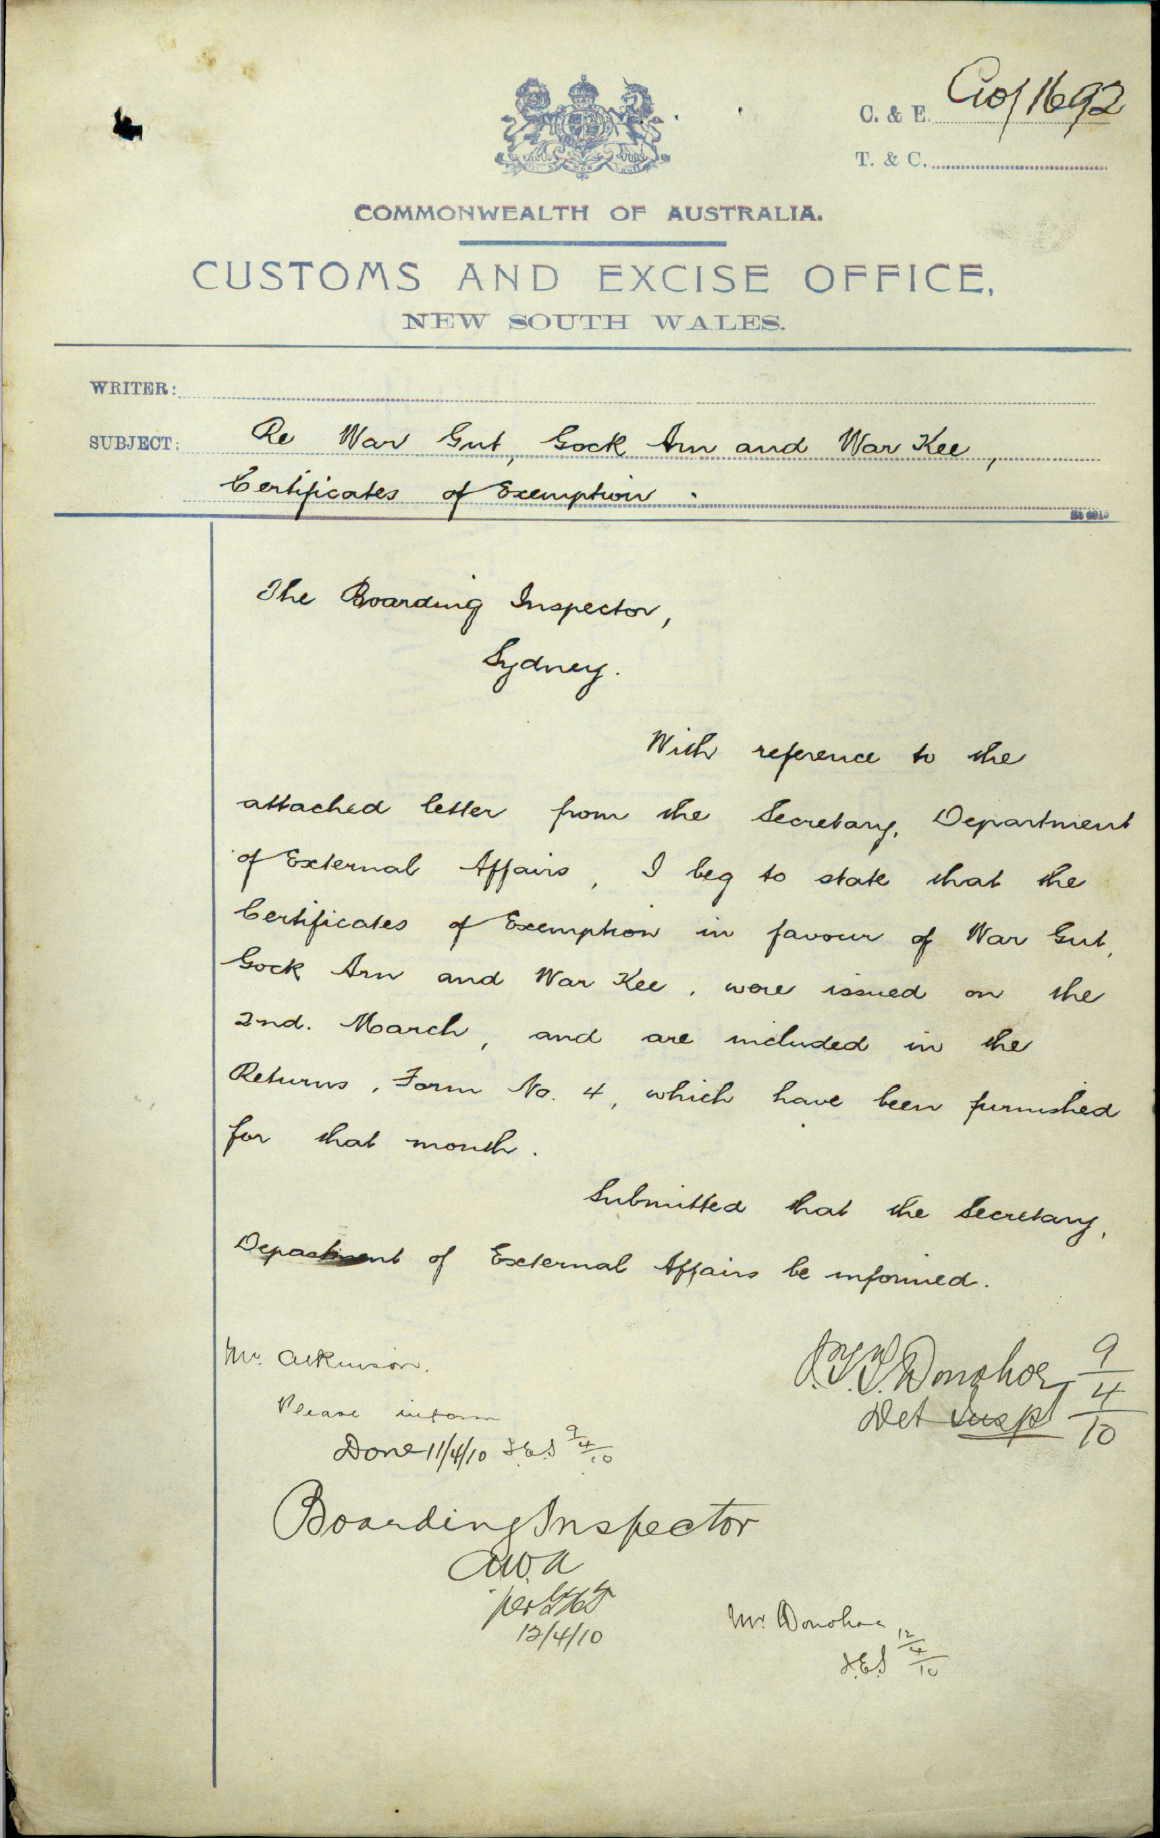 C. & E. C10/1692
T. & C.
COMMONWEALTH OF AUSTRALIA.
CUSTOMS AND EXCISE OFFICE,
NEW SOUTH WALES.
WRITER:
SUBJECT: Re War Gut, Gock Arn and War Kee,
Certificates of Exemption.
The Boarding Inspector,
Sydney.
With reference to the
attached letter from the Secretary, Department
of External Affairs, I beg to state that the
Certificates of Exemption in favour of War Gut,
Gock Arn and War Kee, were issued on the
2nd. March, and are included in the
Returns, Form No. 4, which have been furnished
for that month.
Submitted that the Secretary,
Department of External Affairs be informed.
Mr. Atkinson.
Please inform
Done 11/4/10
9/4/10
Donohoe 9/4/10
Det Inspr
Boarding Inspector
A.W.A
per
12/4/10
Mr. Donohoe
12/4/10